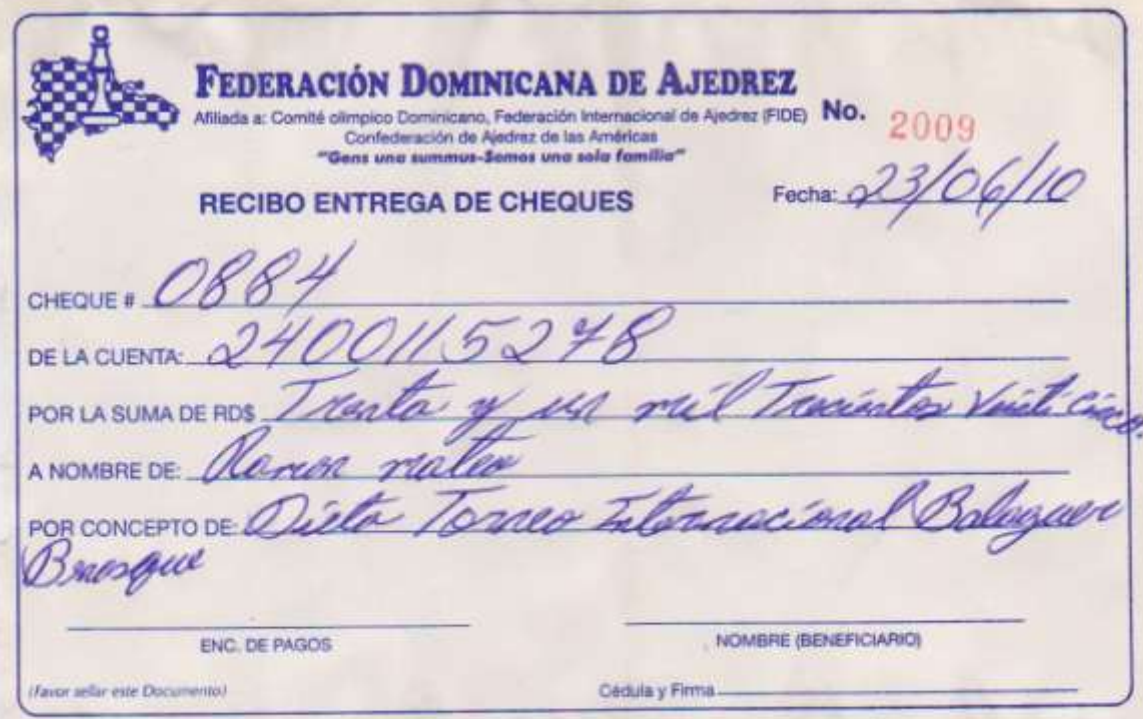 FEDERACIÓN DOMINICANA DE AJEDREZ
Afiliada a: Comité olimpico Dominicano, Federación Internacional de Ajedrez (FIDE) No. 2009
Confederación de Ajedrez de las Américas
"Gens una summus-Somos una sola familia"
RECIBO ENTREGA DE CHEQUES Fecha: 23/06/10
CHEQUE # 0884
DE LA CUENTA: 2400115278
POR LA SUMA DE RD$ Trenta y un mil Trecientos Veinti cinco
A NOMBRE DE: Ramon mateo
POR CONCEPTO DE: Dieta Torneo Internacional Balaguer
ENC. DE PAGOS NOMBRE (BENEFICIARIO)
(Favor sellar este Documento) Cédula y Firma